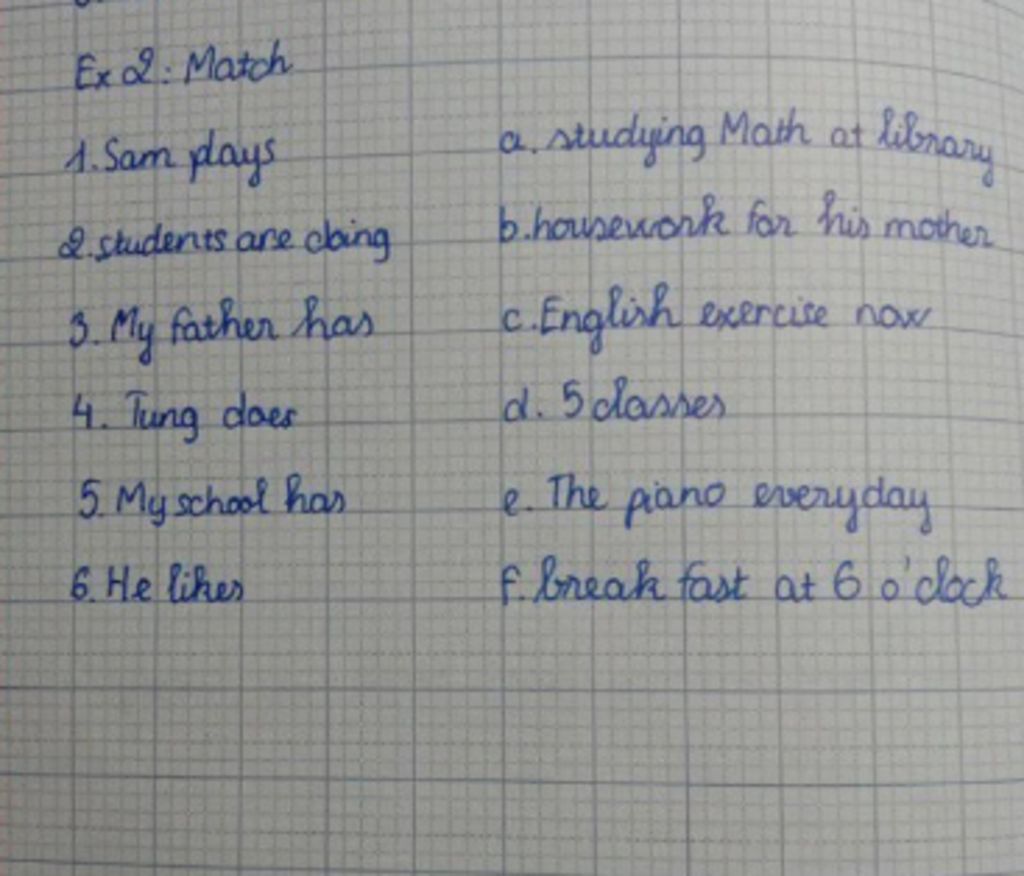 Ex 2: Match
1. Sam plays
a. studying Math at library
2. students are doing
b. housework for his mother
3. My father has
c. English exercise now
4. Tung does
d. 5 classes
5. My school has
e. The piano everyday
6. He likes
f. break fast at 6 o'clock